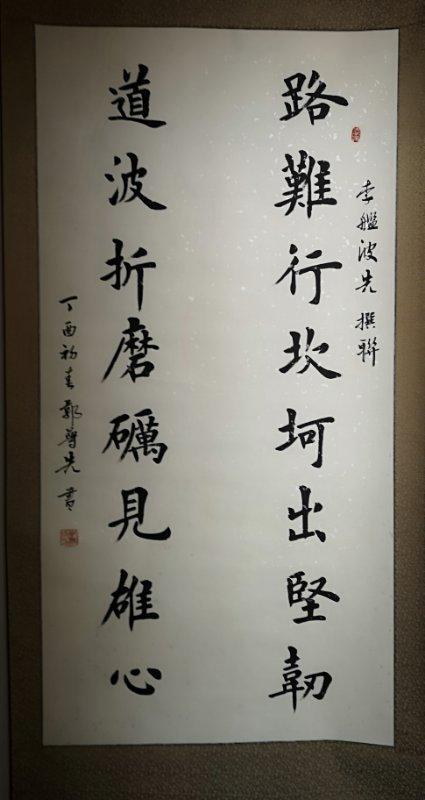 李艦波先撰聯
路難行坎坷出堅韌
道波折磨礪見雄心
丁酉初春郭尊先書